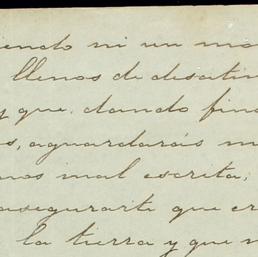 iendo ni un mo
llenos de desatin
y que, dando fin
s, aguardarás m
nos mal escrita;
asegurarte que er
la tierra y que n